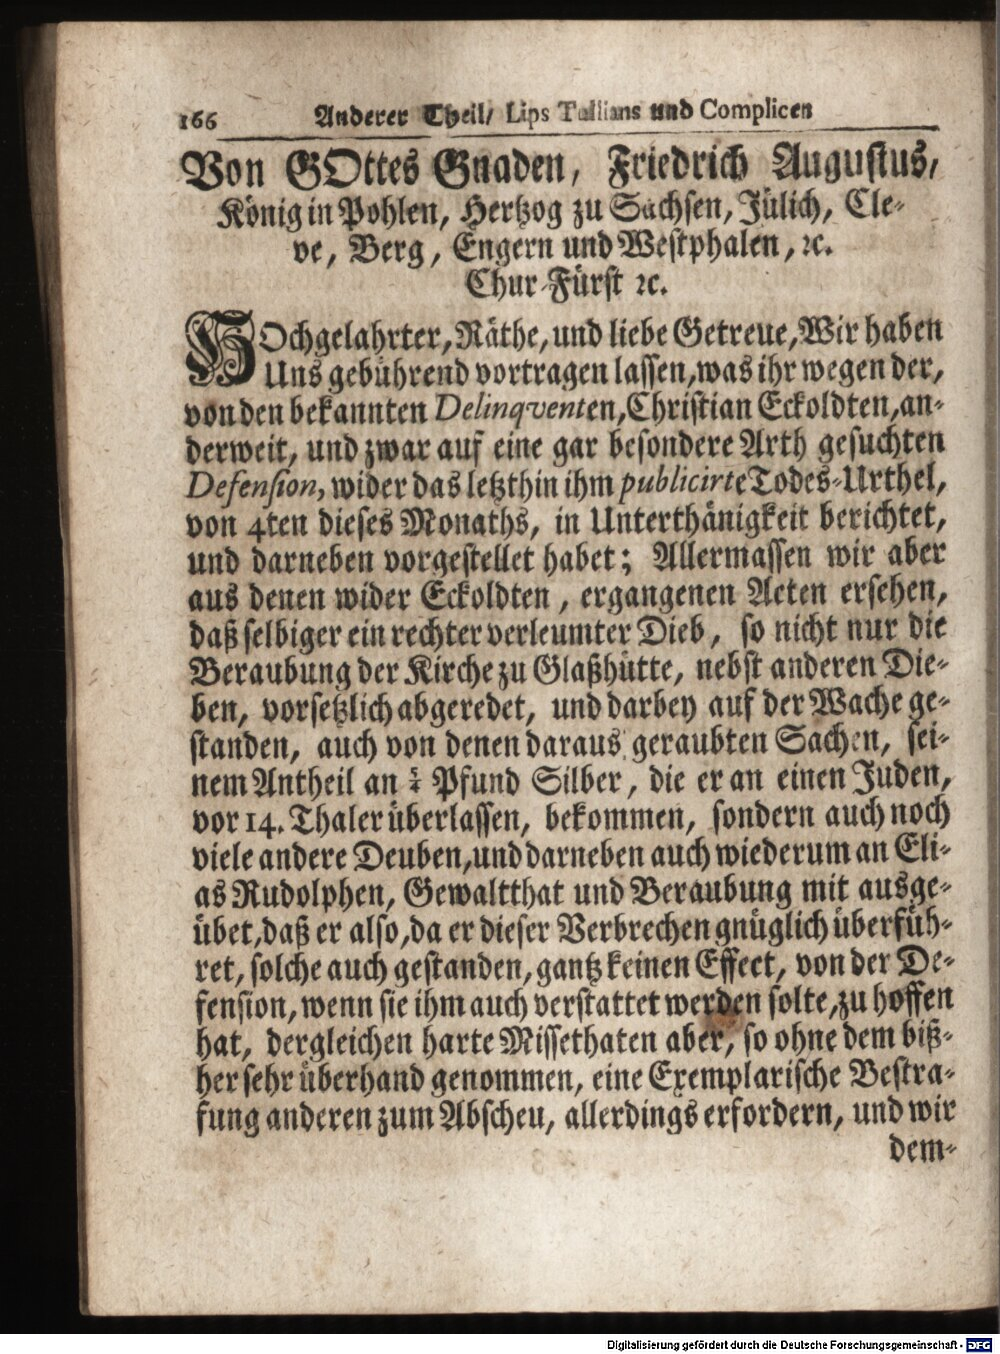 166 Anderer Theil/ Lips Tullians und Complicen
Von GOttes Gnaden, Friedrich Augustus,
König in Pohlen, Hertzog zu Sachsen, Jülich, Cle-
ve, Berg, Engern und Westphalen, ꝛc.
Chur-Fürst ꝛc.
HOchgelahrter, Räthe, und liebe Getreue, Wir haben
Uns gebührend vortragen lassen, was ihr wegen der,
von den bekannten Delinqventen, Christian Eckoldten, an-
derweit, und zwar auf eine gar besondere Arth gesuchten
Defension, wider das letzthin ihm publicirte Todes-Urthel,
von 4ten dieses Monaths, in Unterthänigkeit berichtet,
und darneben vorgestellet habet; Allermassen wir aber
aus denen wider Eckoldten, ergangenen Acten ersehen,
daß selbiger ein rechter verleumter Dieb, so nicht nur die
Beraubung der Kirche zu Glaßhütte, nebst anderen Die-
ben, vorsetzlich abgeredet, und darbey auf der Wache ge-
standen, auch von denen daraus geraubten Sachen, sei-
nem Antheil an Pfund Silber, die er an einen Juden,
vor 14. Thaler überlassen, bekommen, sondern auch noch
viele andere Deuben, und darneben auch wiederum an Eli-
as Rudolphen, Gewaltthat und Beraubung mit ausge-
übet, daß er also, da er dieser Verbrechen gnüglich überfüh-
ret, solche auch gestanden, gantz keinen Effect, von der De-
fension, wenn sie ihm auch verstattet werden solte, zu hoffen
hat, dergleichen harte Missethaten aber, so ohne dem biß-
her sehr überhand genommen, eine Exemplarische Bestra-
fung anderen zum Abscheu, allerdings erfordern, und wir
dem-
Digitalisierung gefördert durch die Deutsche Forschungsgemeinschaft - DFG